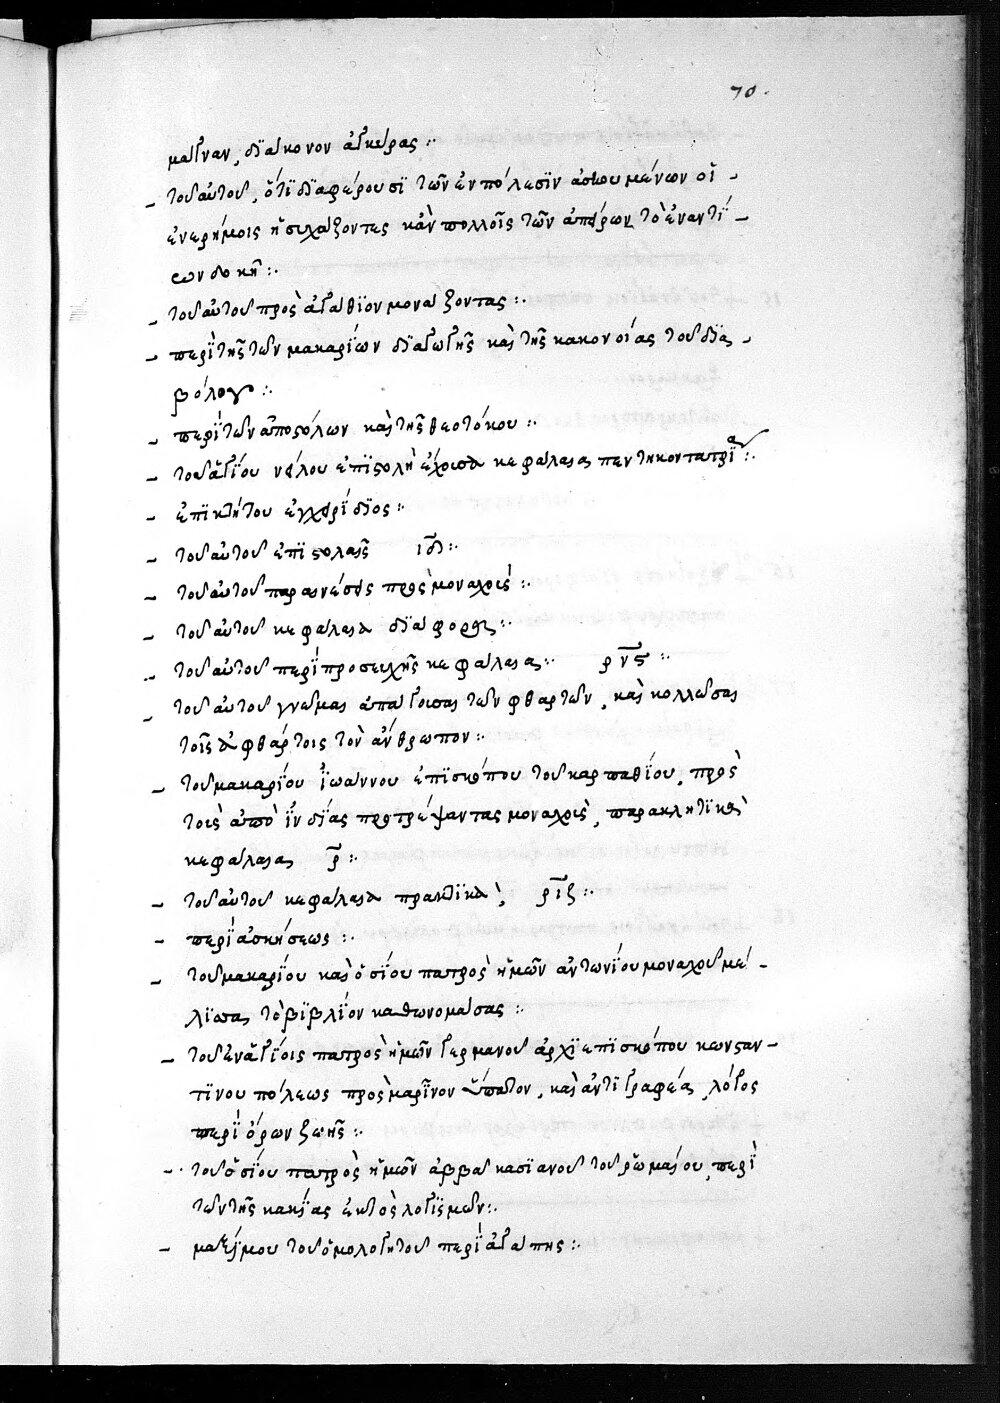 70.
μάγναν, διάκονον ἀγκύρας :·
– τοῦ αὐτοῦ, ὅτι διαφέρουσι τῶν ἐν πόλεσιν ᾠκισμένων οἱ –
ἐν ἐρήμοις ἡσυχάζοντες κἂν πολλοῖς τῶν ἀπείρων τὸ ἐναντί –
ων δοκῆ :·
– τοῦ αὐτοῦ πρὸς ἀγάθιον μονάζοντας :·
– περὶ τῆς τῶν μακαρίων διαγωγῆς καὶ τῆς κακονοίας τοῦ δια –
βόλου :·
– περὶ τῶν ἀποστόλων καὶ τῆς θεοτόκου :·
– τοῦ ἁγίου νείλου ἐπιστολὴ ἔχουσα κεφάλαια πεντηκοντατρία :·
– ἐπικτήτου ἐγχειρίδιος :·
– τοῦ αὐτοῦ ἐπιστολαῖς ιδ :·
– τοῦ αὐτοῦ παραινέσεις πρὸς μοναχούς :·
– τοῦ αὐτοῦ κεφάλαια διάφορα :·
– τοῦ αὐτοῦ περὶ προσευχῆς κεφάλαια :· ρνς :·
– τοῦ αὐτοῦ γνῶμαι ἀπάγουσαι τῶν φθαρτῶν, καὶ κολλῶσαι
τοῖς ἀφθάρτοις τὸν ἄνθρωπον :·
– τοῦ μακαρίου ἰωάννου ἐπισκόπου τοῦ καρπαθίου, πρὸς
τοὺς ἀπὸ ἰνδίας προτρέψαντας μοναχοὺς, παρακλητικὰ
κεφάλαια ρ :·
– τοῦ αὐτοῦ κεφάλαια πρακτικὰ, ριζ :·
– περὶ ἀσκήσεως :·
– τοῦ μακαρίου καὶ ὁσίου πατρὸς ἡμῶν ἀντωνίου μοναχοῦ με –
λίσσα τὸ βιβλίον καθωνομάσας :·
– τοῦ ἐν ἁγίοις πατρὸς ἡμῶν γερμανοῦ ἀρχιεπισκόπου κωνσταν –
τινουπόλεως πρὸς μαρῖνον ὕπατον, καὶ ἀντιγραφέα, λόγος
περὶ ὅρων ζωῆς :·
– τοῦ ὁσίου πατρὸς ἡμῶν ἀββᾶ κασιανοῦ τοῦ ῥωμαίου, περὶ
τῶν τῆς κακίας ὀκτὼ λογισμῶν :·
– μαξίμου τοῦ ὁμολογητοῦ περὶ ἀγάπης :·